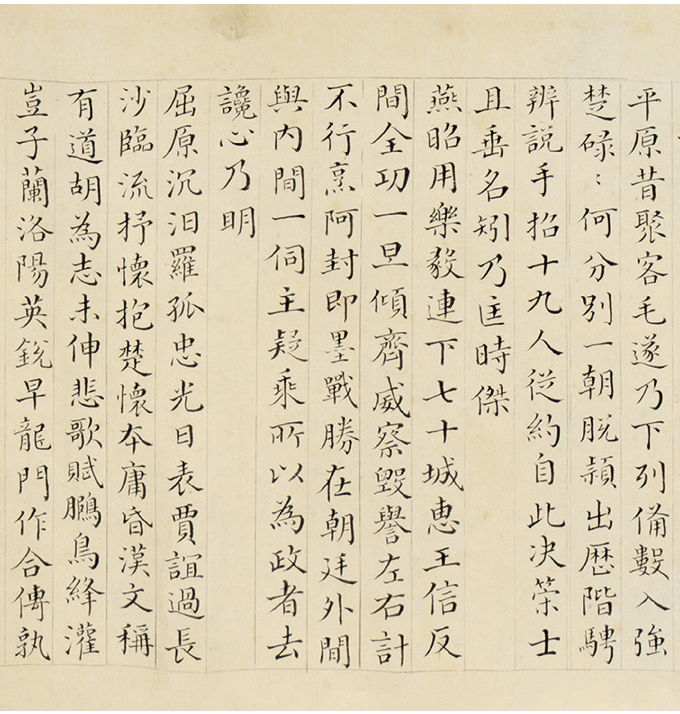 平原昔聚客毛遂乃下列備數入強
楚碌〻何分別一朝脫穎出歷階騁
辨說手招十九人從約自此决策士
且垂名矧乃匡時傑
燕昭用樂毅連下七十城恵王信反
間全功一旦傾齊威察毀譽左右計
不行烹阿封即墨戰勝在朝廷外間
與內間一伺主疑乘所以為政者去
讒心乃明
屈原沉汨羅孤忠光日表賈誼過長
沙臨流抒懷抱楚懷本庸昏漢文稱
有道胡為志未伸悲歌賦鵩鳥絳灌
豈子蘭洛陽英銳早龍門作合傳孰